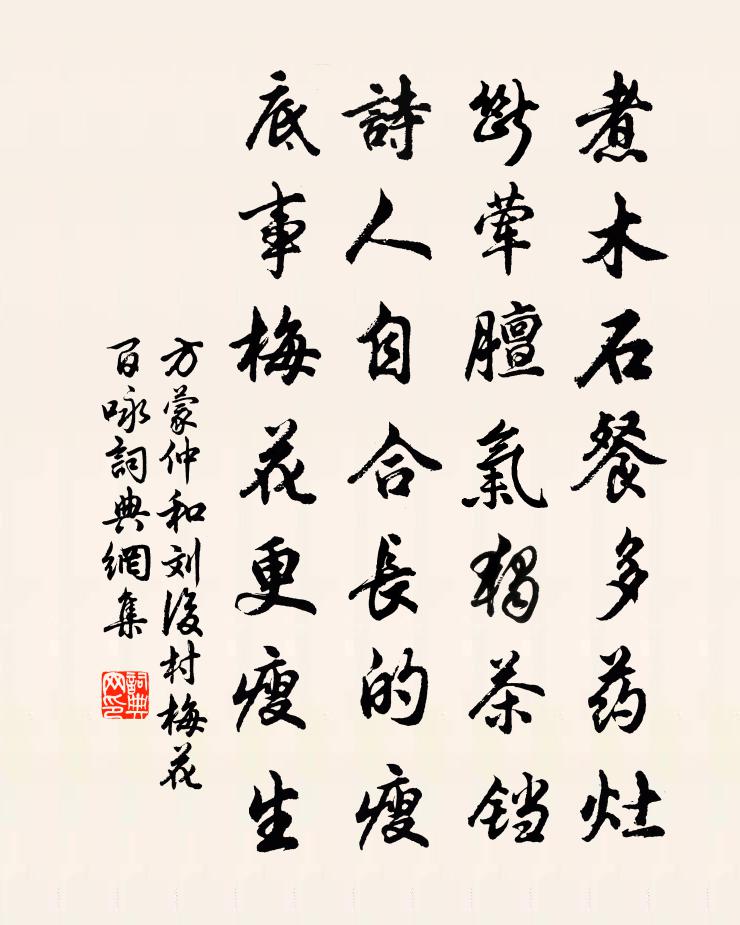 煮木石餐多药灶
断荤膻氣独茶铛
詩人自合長的瘦
底事梅花更瘦生
方蒙仲和刘後村梅花
百咏詞典網集
詞典网印